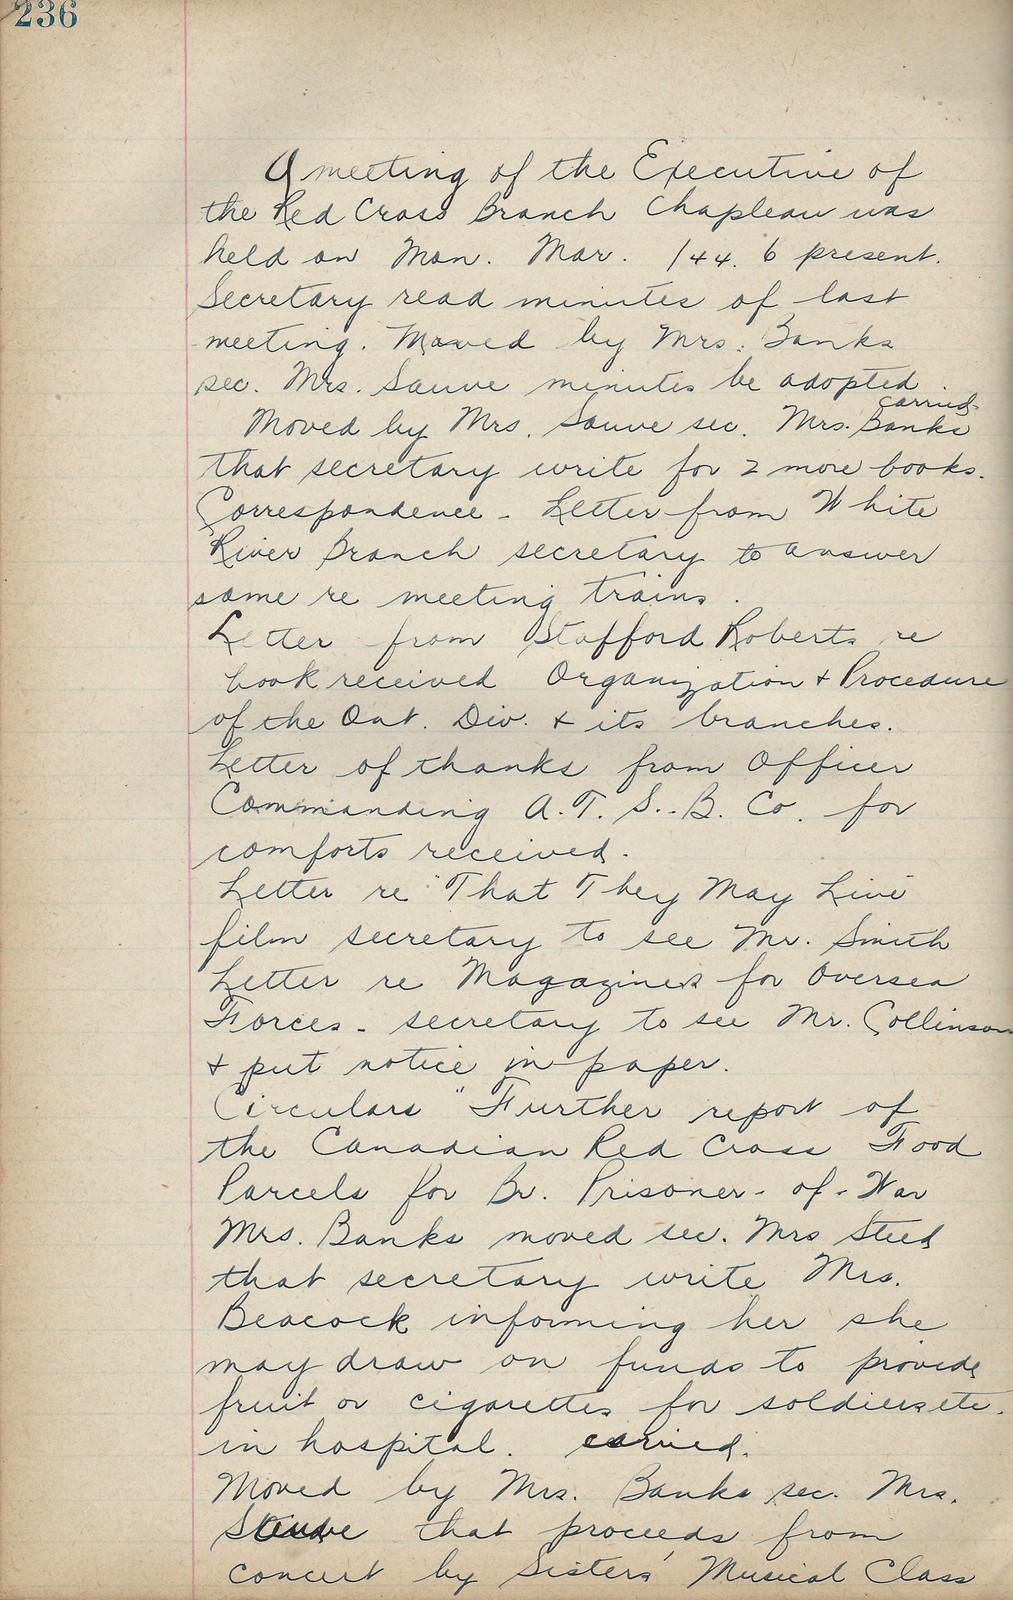 236
A meeting of the Executive of
the Red Cross Branch Chapleau was
held on Mon. Mar. 1 44. 6 present.
Secretary read minutes of last
meeting. Moved by Mrs. Banks
sec. Mrs. Sauve minutes be adopted.
carried
Moved by Mrs. Sauve sec. Mrs. Banks
that secretary write for 2 more books.
Correspondence - Letter from White
River Branch secretary to answer
same re meeting trains.
Letter from Stafford Roberts re
book received Organization + Procedure
of the Ont. Div. + its branches.
Letter of thanks from Officer
Commanding A.T.S.B. Co. for
comforts received.
Letter re "That They May Live"
film secretary to see Mr. Smith
Letter re Magazines for Oversea
Forces - secretary to see Mr. Collinson
+ put notice in paper.
Circulars "Further report of
the Canadian Red Cross Food
Parcels for Br. Prisoner-of-War
Mrs. Banks moved sec. Mrs Steed
that secretary write Mrs.
Beacock informing her she
may draw on funds to provide
fruit or cigarettes for soldiers etc.
in hospital. carried.
Moved by Mrs. Banks sec. Mrs.
that proceeds from
concert by Sisters' Musical Class